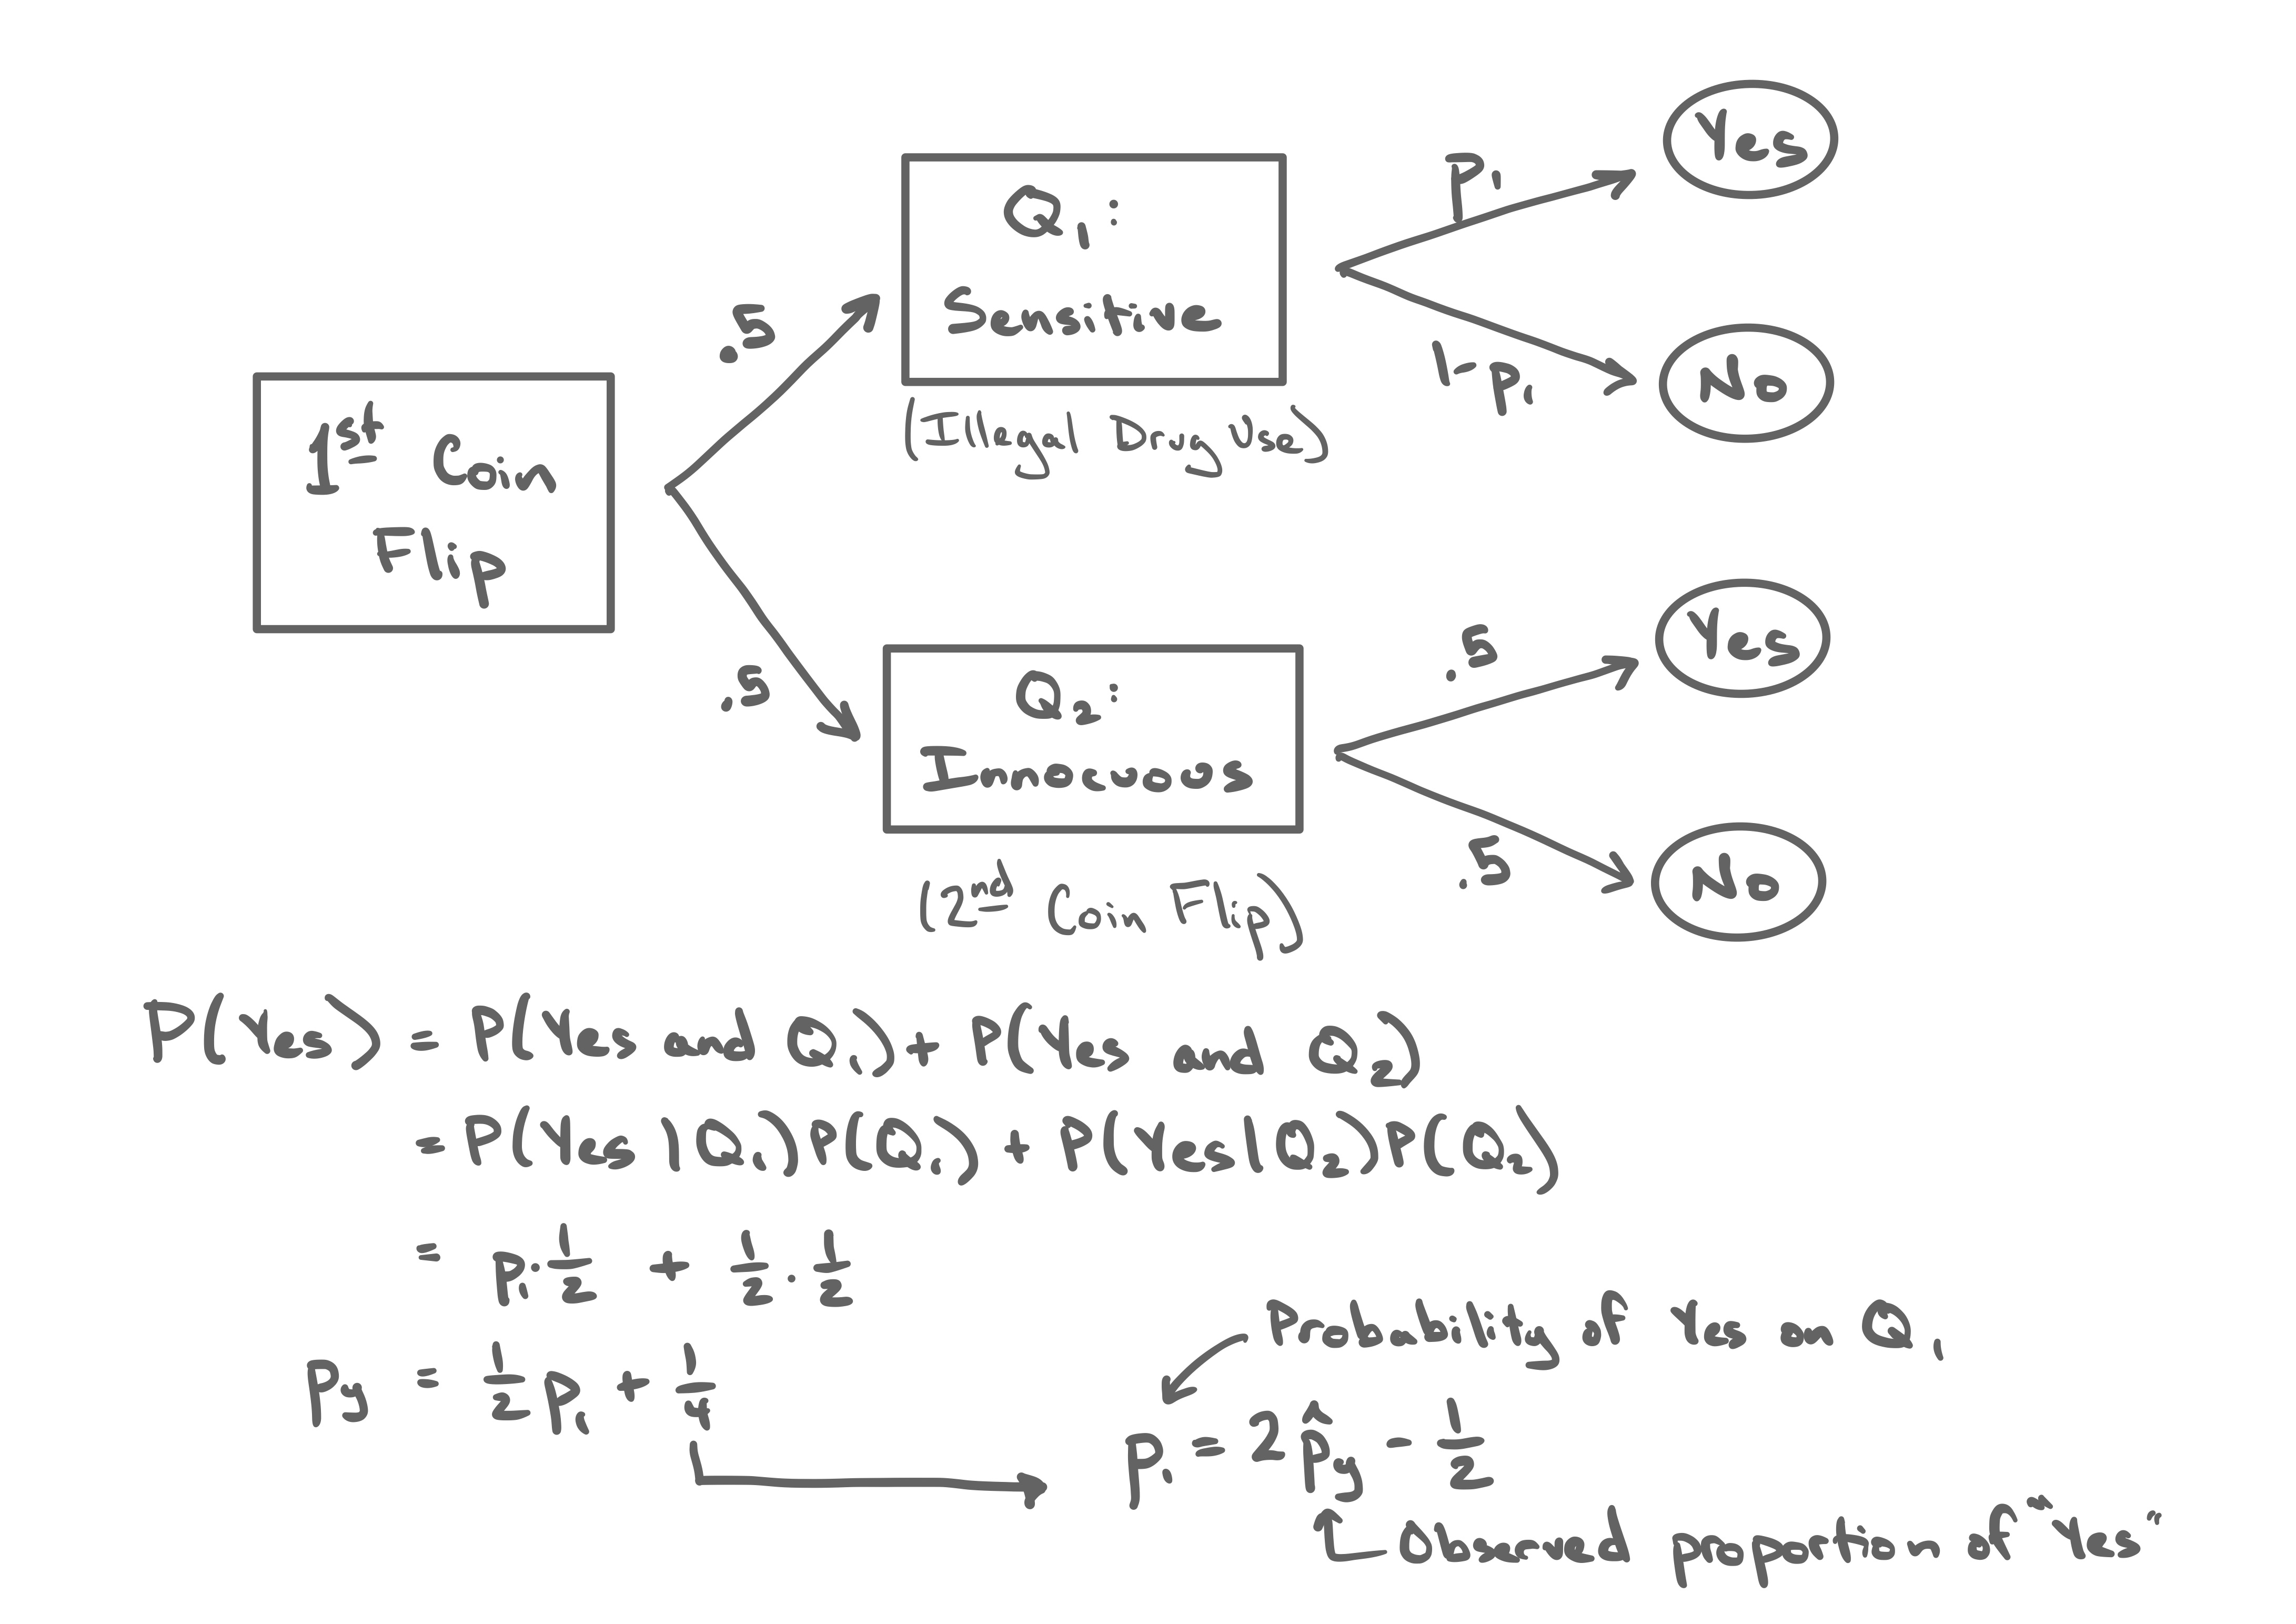 1st Coin
Flip
.5
.5
Q1:
Sensitive
(Illegal Drug Use)
P1
1-P1
Yes
No
Q2:
Innocuous
(2nd Coin Flip)
.5
.5
Yes
No
P(Yes) = P(Yes and Q1) + P(Yes and Q2)
= P(Yes | Q1)P(Q1) + P(Yes | Q2)P(Q2)
= P1 · 1/2 + 1/2 · 1/2
Py = 1/2 P1 + 1/4
Probability of Yes on Q1
P1 = 2p̂y - 1/2
Observed proportion of "Yes"